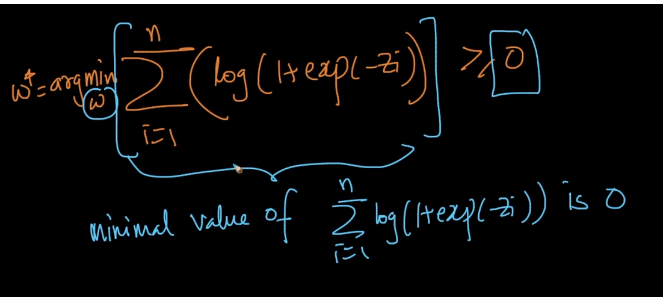 w* = argmin_w [ n∑i=1 (log(1+exp(-zi)) ] ≥ 0
minimal value of n∑i=1 log(1+exp(-zi)) is 0